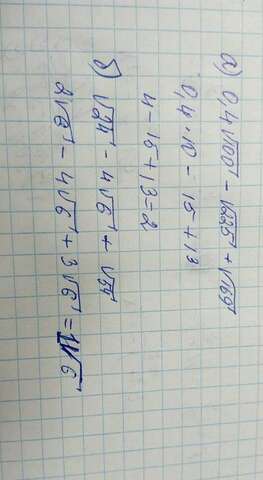 а) 0,4√100 - √225 + √169
0,4·10 - 15 + 13
4 - 15 + 13 = 2
б) √24 - 4√6 + √54
2√6 - 4√6 + 3√6 = 1√6